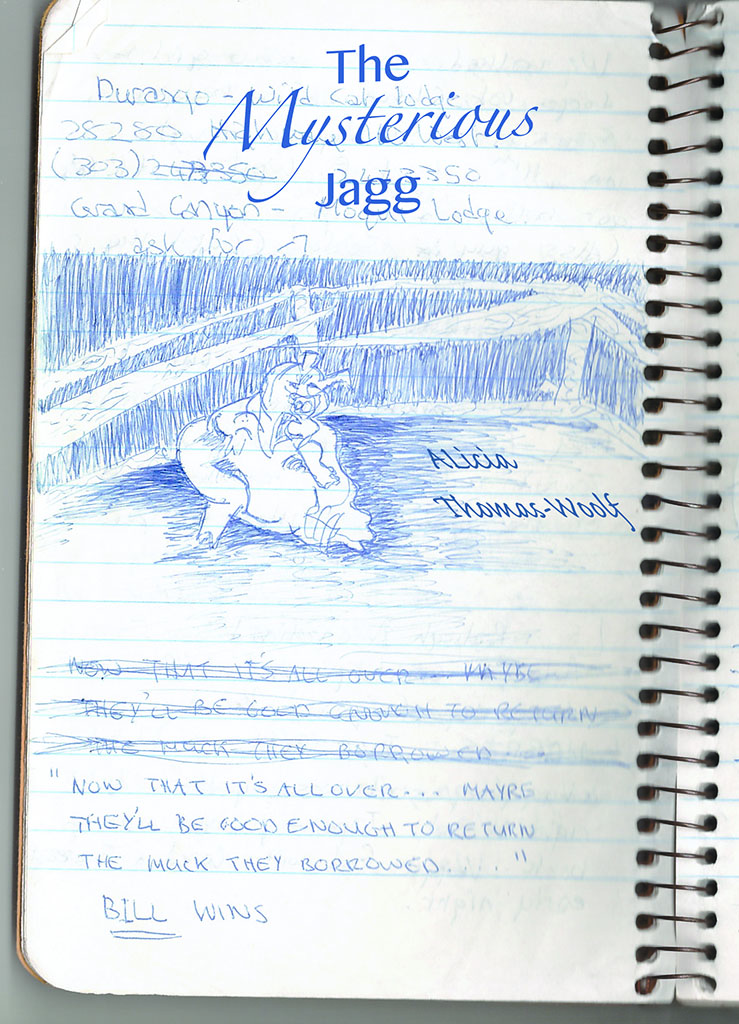 The
Mysterious
Jagg
Durango - Wild Cat lodge
28280
(303) 2473350 2473350
Grand Canyon - Moqui Lodge
ask for →
Alicia
Thomas-Woolf
NOW THAT IT'S ALL OVER... MAYBE
THEY'LL BE GOOD ENOUGH TO RETURN
THE MUCK THEY BORROWED...
"NOW THAT IT'S ALL OVER... MAYBE
THEY'LL BE GOOD ENOUGH TO RETURN
THE MUCK THEY BORROWED...."
BILL WINS